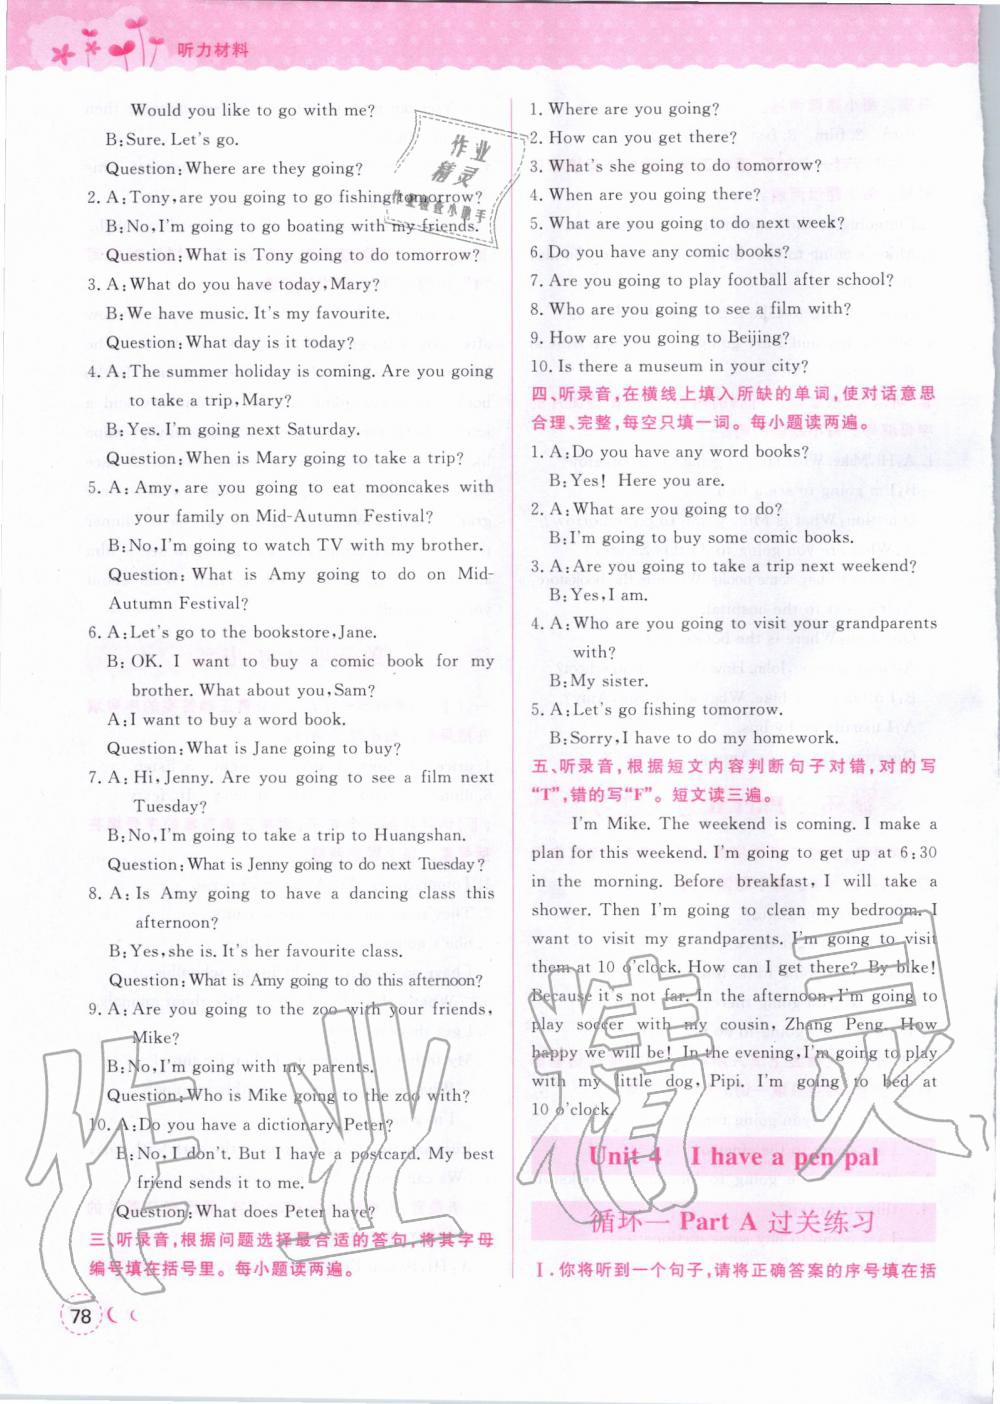 听力材料
Would you like to go with me?
B:Sure. Let's go.
Question:Where are they going?
2. A:Tony,are you going to go fishing tomorrow?
B:No,I'm going to go boating with my friends.
Question:What is Tony going to do tomorrow?
3. A:What do you have today,Mary?
B:We have music. It's my favourite.
Question:What day is it today?
4. A:The summer holiday is coming. Are you going
to take a trip,Mary?
B:Yes. I'm going next Saturday.
Question:When is Mary going to take a trip?
5. A:Amy,are you going to eat mooncakes with
your family on Mid-Autumn Festival?
B:No,I'm going to watch TV with my brother.
Question: What is Amy going to do on Mid-
Autumn Festival?
6. A:Let's go to the bookstore,Jane.
B: OK. I want to buy a comic book for my
brother. What about you,Sam?
A:I want to buy a word book.
Question:What is Jane going to buy?
7. A:Hi,Jenny. Are you going to see a film next
Tuesday?
B:No,I'm going to take a trip to Huangshan.
Question:What is Jenny going to do next Tuesday?
8. A:Is Amy going to have a dancing class this
afternoon?
B:Yes,she is. It's her favourite class.
Question:What is Amy going to do this afternoon?
9. A:Are you going to the zoo with your friends,
Mike?
B:No,I'm going with my parents.
Question:Who is Mike going to the zoo with?
10. A:Do you have a dictionary,Peter?
B:No,I don't. But I have a postcard. My best
friend sends it to me.
Question:What does Peter have?
三、听录音,根据问题选择最合适的答句,将其字母
编号填在括号里。每小题读两遍。
78
1. Where are you going?
2. How can you get there?
3. What's she going to do tomorrow?
4. When are you going there?
5. What are you going to do next week?
6. Do you have any comic books?
7. Are you going to play football after school?
8. Who are you going to see a film with?
9. How are you going to Beijing?
10. Is there a museum in your city?
四、听录音,在横线上填入所缺的单词,使对话意思
合理、完整,每空只填一词。每小题读两遍。
1. A:Do you have any word books?
B:Yes! Here you are.
2. A:What are you going to do?
B:I'm going to buy some comic books.
3. A:Are you going to take a trip next weekend?
B:Yes,I am.
4. A:Who are you going to visit your grandparents
with?
B:My sister.
5. A:Let's go fishing tomorrow.
B:Sorry,I have to do my homework.
五、听录音,根据短文内容判断句子对错,对的写
“T”,错的写“F”。短文读三遍。
I'm Mike. The weekend is coming. I make a
plan for this weekend. I'm going to get up at 6:30
in the morning. Before breakfast, I will take a
shower. Then I'm going to clean my bedroom. I
want to visit my grandparents. I'm going to visit
them at 10 o'clock. How can I get there? By bike!
Because it's not far. In the afternoon,I'm going to
play soccer with my cousin, Zhang Peng. How
happy we will be! In the evening,I'm going to play
with my little dog, Pipi. I'm going to bed at
10 o'clock.
Unit 4 I have a pen pal
循环一 Part A 过关练习
Ⅰ. 你将听到一个句子,请将正确答案的序号填在括
作业
精灵
作业检查小助手
作业精灵